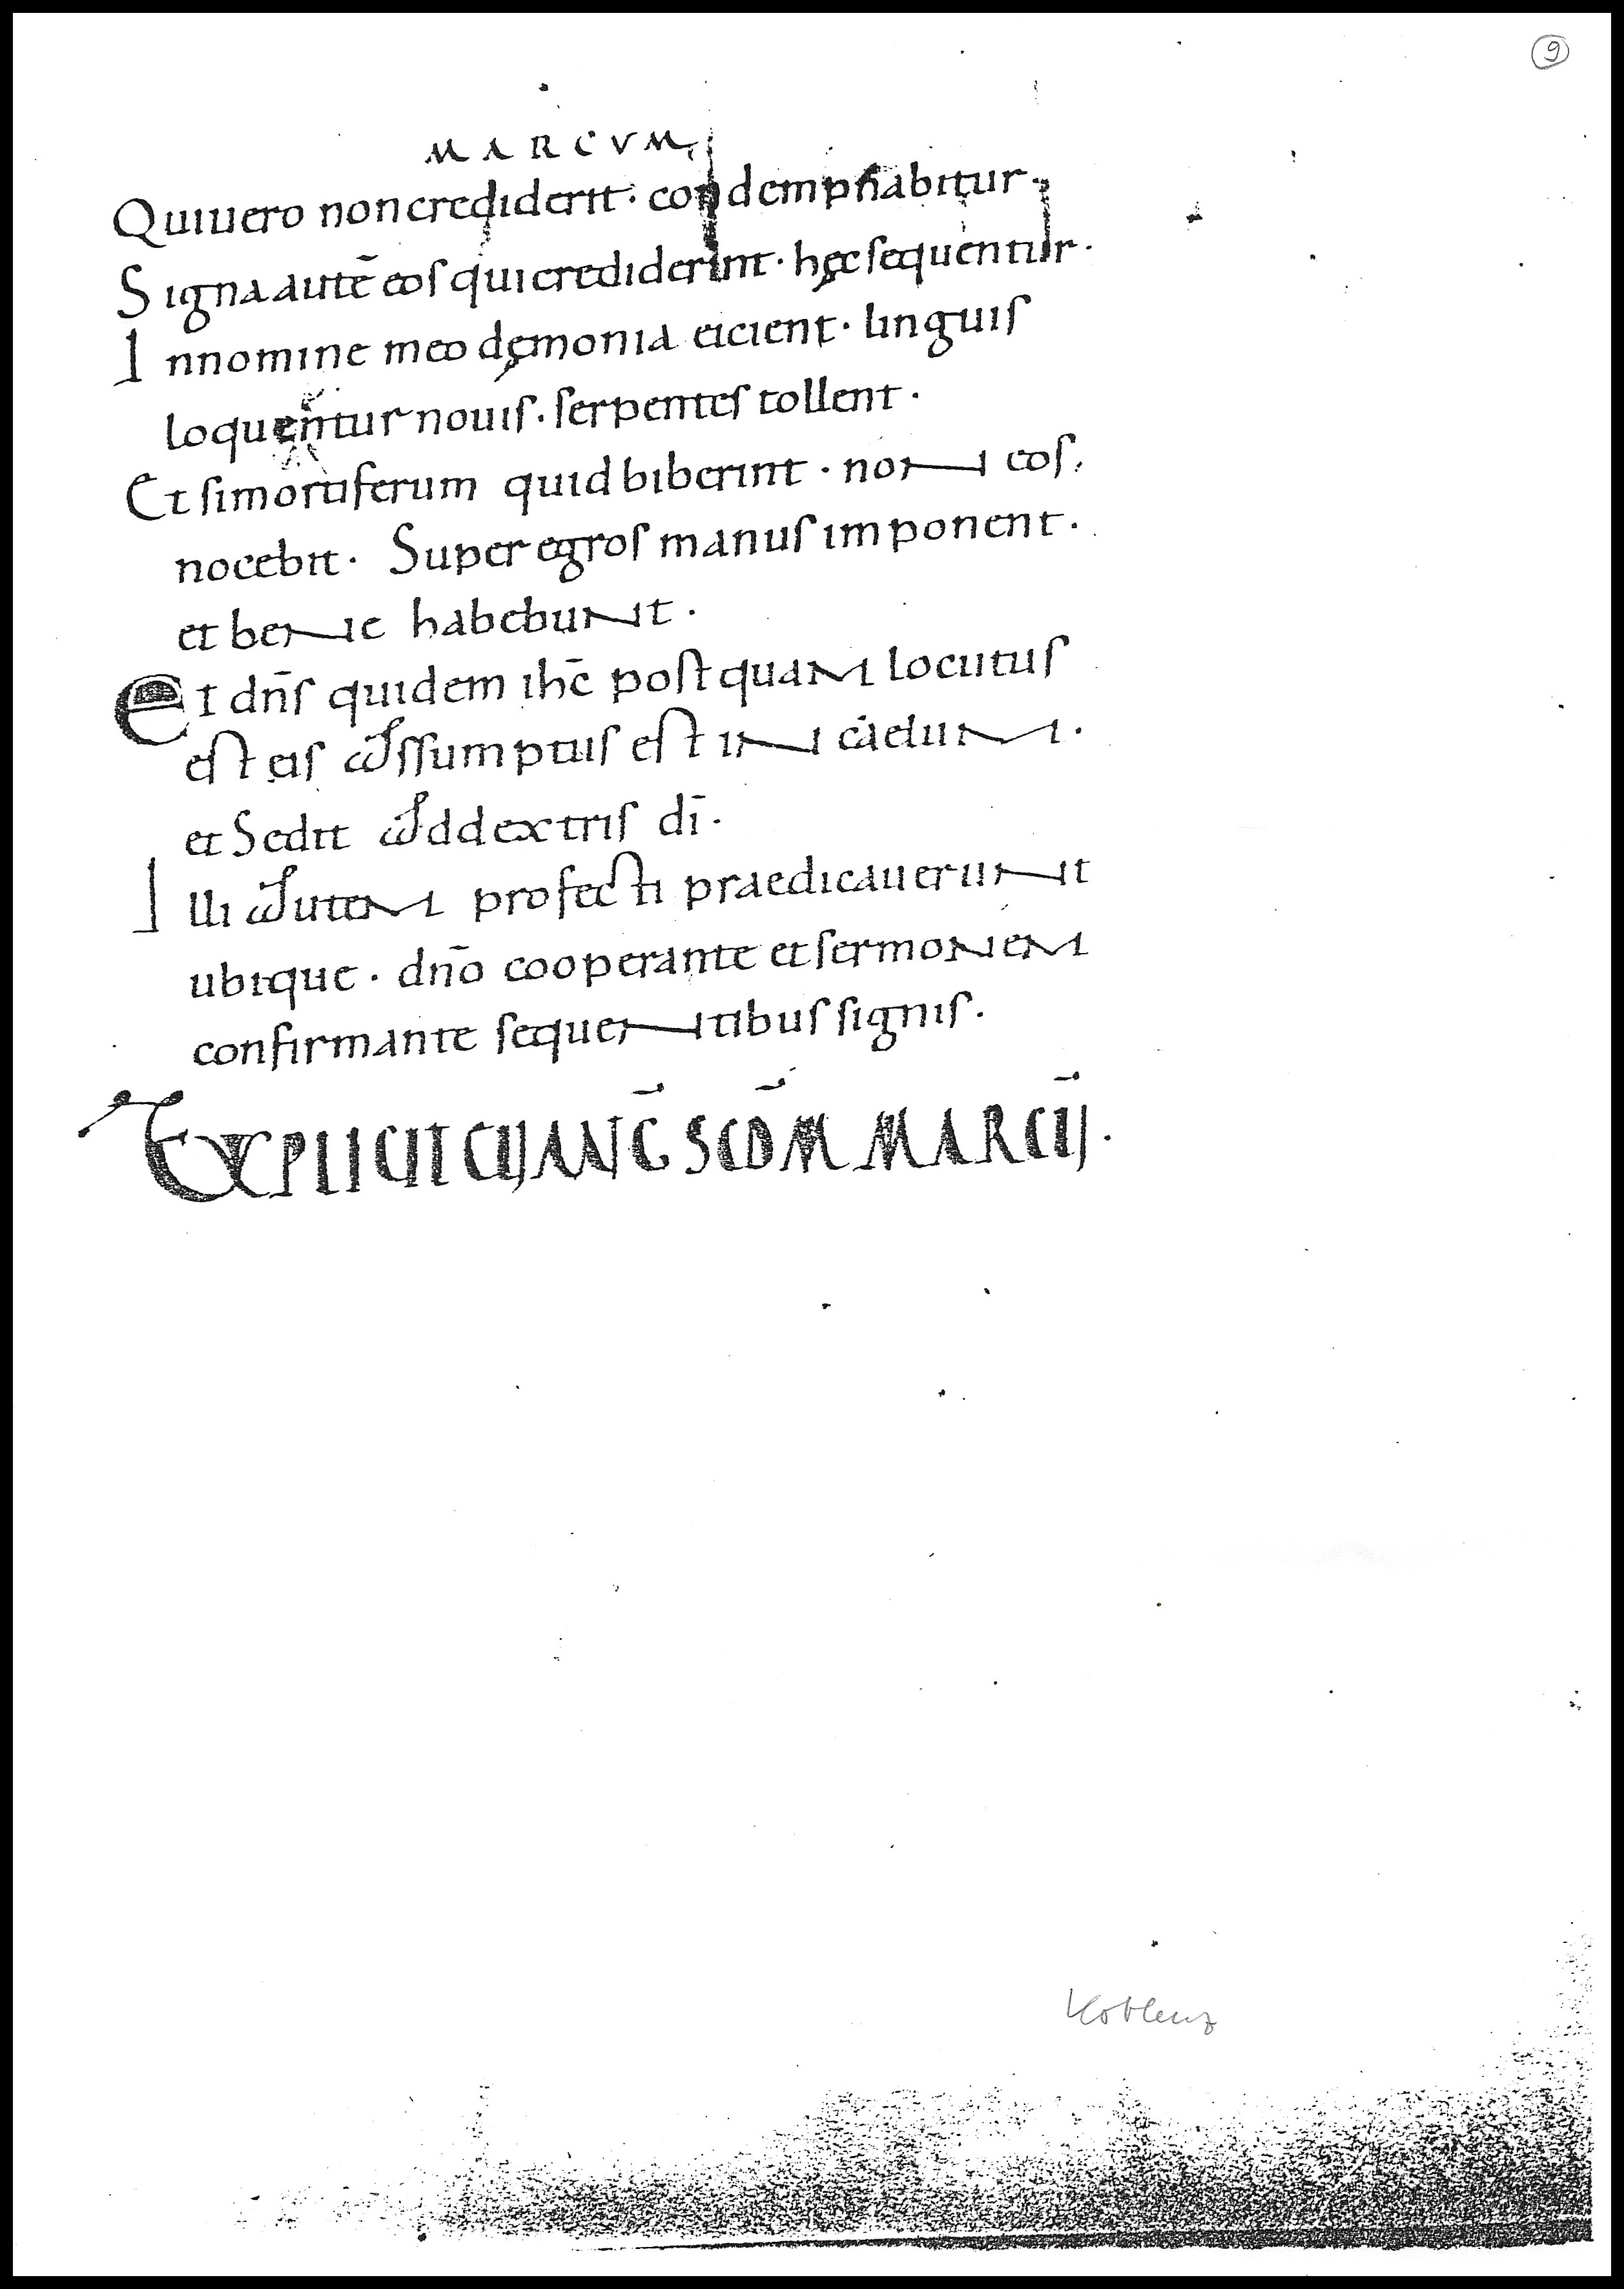 9
MARCVM
Qui uero non crediderit· condempnabitur·
Signa autē eos qui crediderint· hęc sequentur·
In nomine meo dęmonia eicient· linguis
loquentur nouis· serpentes tollent·
Et si mortiferum quid biberint· non eos
nocebit· Super egros manus imponent·
et bene habebunt·
Et dn̄s quidem ihc̄ postquam locutus
est eis assumptus est in caelum·
et Sedit ad dextris dī·
Illi autem profecti praedicauerunt
ubique· dn̄o cooperante et sermonem
confirmante sequentibus signis·
EXPLICIT EUANḠ SCD̄M MARCŪ·
Koblenz